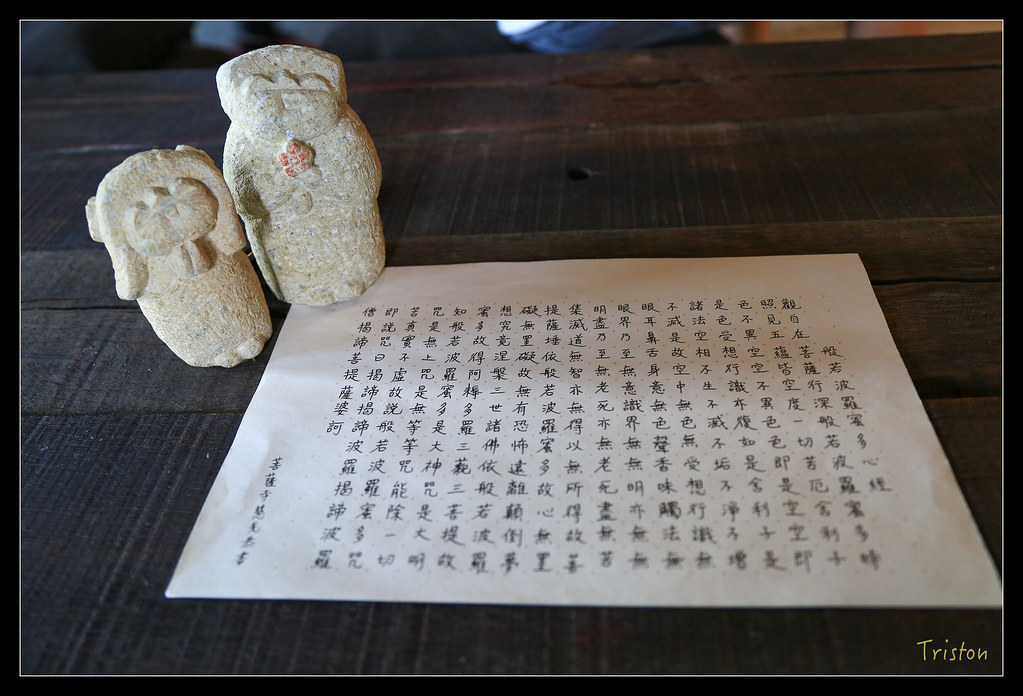 般若波羅蜜多心經
觀自在菩薩行深般若波羅蜜多時
照見五蘊皆空度一切苦厄舍利子
色不異空空不異色色即是空空即
是色受想行識亦復如是舍利子是
諸法空相不生不滅不垢不淨不增
不減是故空中無色無受想行識無
眼耳鼻舌身意無色聲香味觸法無
眼界乃至無意識界無無明亦無無
明盡乃至無老死亦無老死盡無苦
集滅道無智亦無得以無所得故菩
提薩埵依般若波羅蜜多故心無罣
礙無罣礙故無有恐怖遠離顛倒夢
想究竟涅槃三世諸佛依般若波羅
蜜多故得阿耨多羅三藐三菩提故
知般若波羅蜜多是大神咒是大明
咒是無上咒是無等等咒能除一切
苦真實不虛故說般若波羅蜜多咒
即說咒曰揭諦揭諦波羅揭諦波羅
僧揭諦菩提薩婆訶
菩薩寺慧書
Triston